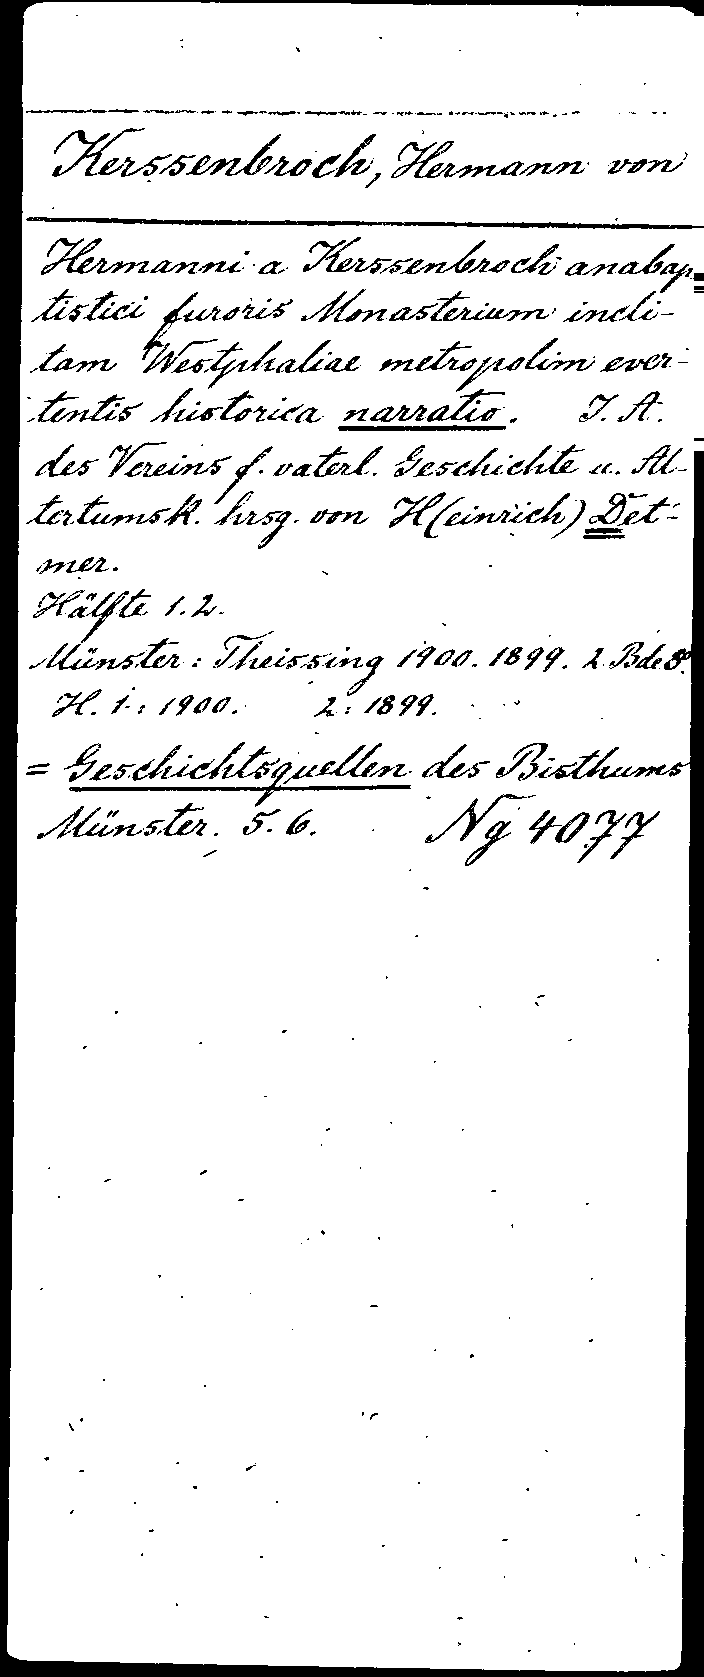 Kerssenbroch, Hermann von
Hermanni a Kerssenbroch anabap=
tistici furoris Monasterium incli-
tam Westphaliae metropolim ever-
tentis historica narratio. I. A.
des Vereins f. vaterl. Geschichte u. Al-
tertumsk. hrsg. von H(einrich) Det-
mer.
Hälfte 1.2.
Münster: Theissing 1900. 1899. 2 Bde 8°.
H. 1.: 1900. 2: 1899.
= Geschichtsquellen des Bisthums
Münster. 5. 6. Ng 4077